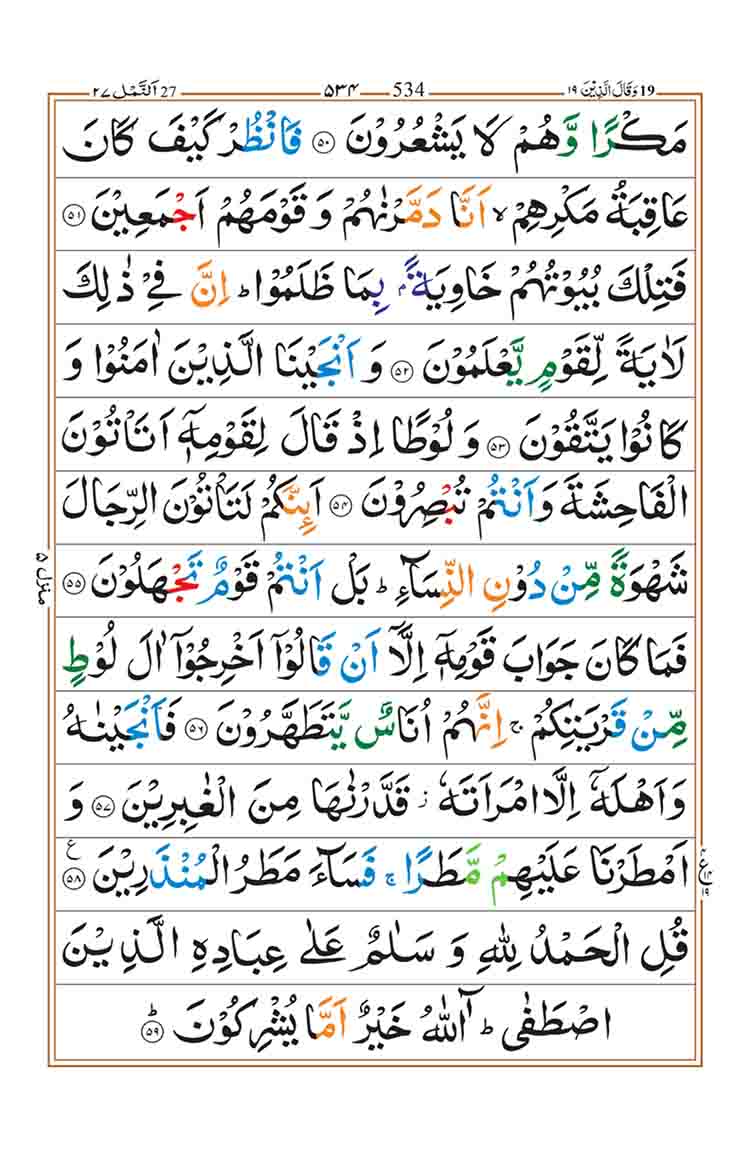 19 وَقَالَ الَّذِيْنَ ۱۹ 534 ۵۳۴ 27 اَلنَّمْل ۲۷
مَكْرًا وَّهُمْ لَا يَشْعُرُوْنَ ۝۵۰ فَانْظُرْ كَيْفَ كَانَ
عَاقِبَةُ مَكْرِهِمْ ۙ اَنَّا دَمَّرْنٰهُمْ وَ قَوْمَهُمْ اَجْمَعِيْنَ ۝۵۱
فَتِلْكَ بُيُوْتُهُمْ خَاوِيَةًۢ بِمَا ظَلَمُوْا ؕ اِنَّ فِيْ ذٰلِكَ
لَاٰيَةً لِّقَوْمٍ يَّعْلَمُوْنَ ۝۵۲ وَ اَنْجَيْنَا الَّذِيْنَ اٰمَنُوْا وَ
كَانُوْا يَتَّقُوْنَ ۝۵۳ وَ لُوْطًا اِذْ قَالَ لِقَوْمِهٖۤ اَتَاْتُوْنَ
الْفَاحِشَةَ وَ اَنْتُمْ تُبْصِرُوْنَ ۝۵۴ اَىِٕنَّكُمْ لَتَاْتُوْنَ الرِّجَالَ
شَهْوَةً مِّنْ دُوْنِ النِّسَآءِ ؕ بَلْ اَنْتُمْ قَوْمٌ تَجْهَلُوْنَ ۝۵۵
منزل ۵
فَمَا كَانَ جَوَابَ قَوْمِهٖۤ اِلَّاۤ اَنْ قَالُوْۤا اَخْرِجُوْۤا اٰلَ لُوْطٍ
مِّنْ قَرْيَتِكُمْ ۚ اِنَّهُمْ اُنَاسٌ يَّتَطَهَّرُوْنَ ۝۵۶ فَاَنْجَيْنٰهُ
وَ اَهْلَهٗۤ اِلَّا امْرَاَتَهٗ ؗ قَدَّرْنٰهَا مِنَ الْغٰبِرِيْنَ ۝۵۷ وَ
اَمْطَرْنَا عَلَيْهِمْ مَّطَرًا ۚ فَسَآءَ مَطَرُ الْمُنْذَرِيْنَ ۝۵۸ ع
۴ ع ۱۴ ۱۹
قُلِ الْحَمْدُ لِلّٰهِ وَ سَلٰمٌ عَلٰى عِبَادِهِ الَّذِيْنَ
اصْطَفٰى ؕ آٰللّٰهُ خَيْرٌ اَمَّا يُشْرِكُوْنَ ؕ۝۵۹